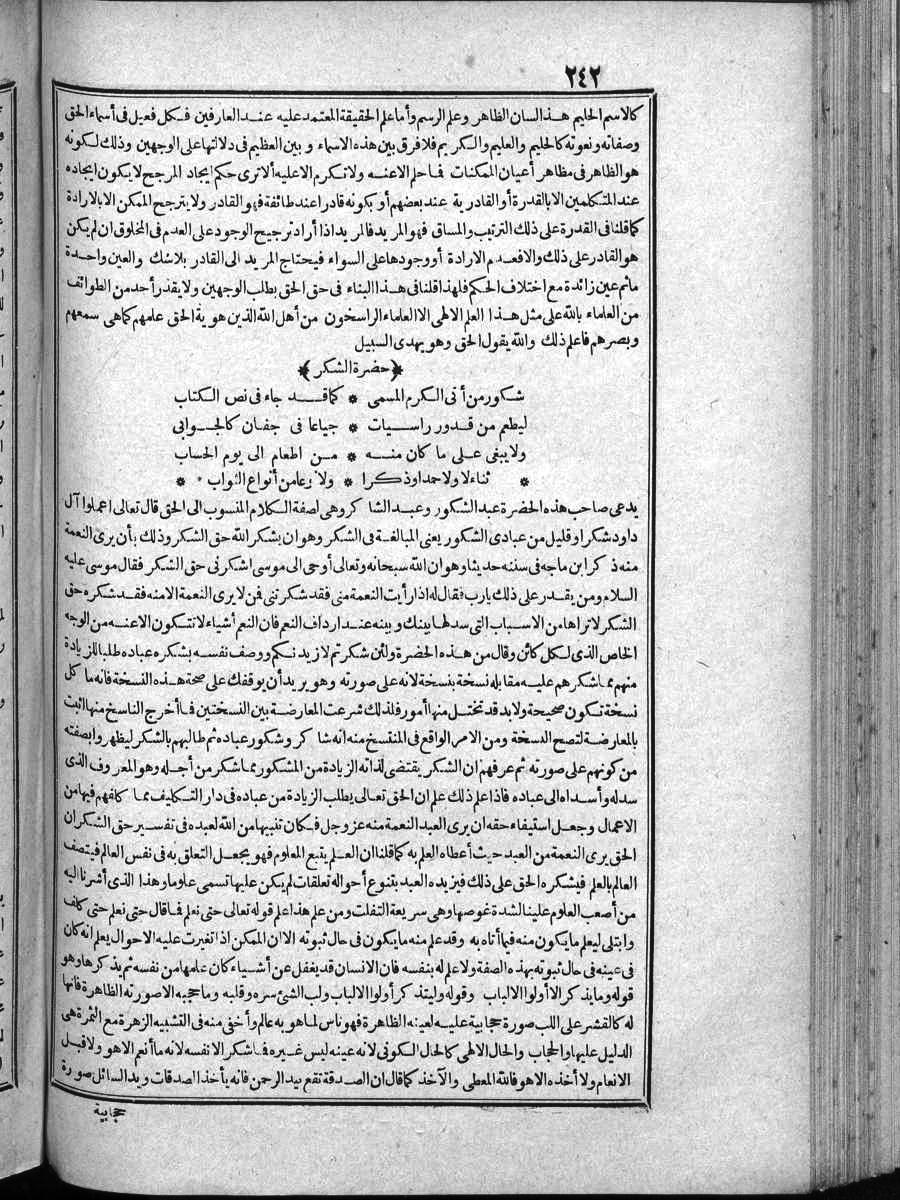 ٢٤٢
كالاسم الحليم هذا لسان الظاهر وعلم الرسم وأما علم الحقيقة المعتمد عليه عند العارفين فكل فعيل فى أسماء الحق
وصفاته ونعوته كالحليم والعليم والكريم فلا فرق بين هذه الاسماء وبين العظيم فى دلالتها على الوجهين وذلك لكونه
هو الظاهر فى مظاهر أعيان الممكنات فما حلم الا عنه ولا تكرم الا عليه ألا ترى حكم ايجاد المرجح لا يكون ايجاده
عند المتكلمين الا بالقدرة أو القادرية عند بعضهم أو بكونه قادرا عند طائفة فهو القادر ولا يترجح الممكن الا بالارادة
كما قلنا فى القدرة على ذلك الترتيب والمساق فهو المريد فالمريد اذا أراد ترجيح الوجود على العدم فى المخلوق ان لم يكن
هو القادر على ذلك والا فعدم الارادة أو وجودها على السواء فيحتاج المريد الى القادر بلا شك والعين واحدة
ما ثم عين زائدة مع اختلاف الحكم فلهذا قلنا فى هذا البناء فى حق الحق يطلب الوجهين ولا يقدر أحد من الطوائف
من العلماء بالله على مثل هذا العلم الالهى الا العلماء الراسخون من أهل الله الذين هوية الحق علمهم كما هى سمعهم
وبصرهم فاعلم ذلك والله يقول الحق وهو يهدى السبيل
﴿حضرة الشكر﴾
شكور من أتى الكرم المسمى * كما قد جاء فى نص الكتاب
ليطعم من قدور راسيات * جياعا فى جفان كالجوابى
ولا يبغى على ما كان منه * من اطعام الى يوم الحساب
* ثناء لا ولا حمدا وذكرا * ولا نوعا من أنواع الثواب *
يدعى صاحب هذه الحضرة عبد الشكور وعبد الشاكر وهى لصفة الكلام المنسوب الى الحق قال تعالى اعملوا آل
داود شكرا وقليل من عبادى الشكور يعنى المبالغة فى الشكر وهو ان يشكر الله حق الشكر وذلك بأن يرى النعمة
منه ذكر ابن ماجه فى سننه حديثا وهو ان الله سبحانه وتعالى أوحى الى موسى اشكرنى حق الشكر فقال موسى عليه
السلام ومن يقدر على ذلك يارب فقال له اذا رأيت النعمة منى فقد شكرتنى فمن لا يرى النعمة الا منه فقد شكره حق
الشكر لا تراها من الاسباب التى سدلها بينك وبينه عند ارداف النعم فان النعم أشياء لا تتكون الا عنه من الوجه
الخاص الذى لكل كائن وقال من هذه الحضرة ولئن شكرتم لازيدنكم ووصف نفسه بشكره عباده طلبا للزيادة
منهم مما شكرهم عليه مقابله نسخة بنسخة لانه على صورته وهو يريد أن يوقفك على صحة هذه النسخة فانه ما كل
نسخة تكون صحيحة ولا بد قد تختل منها أمور فلذلك شرعت المعارضة بين النسختين فما أخرج الناسخ منها اثبت
بالمعارضة لتصح النسخة ومن الامر الواقع فى المنتسخ منه انه شاكر وشكور عباده ثم طالبهم بالشكر ليظهروا بصفته
من كونهم على صورته ثم عرفهم ان الشكر يقتضى لذاته الزيادة من المشكور مما شكر من أجله وهو المعروف الذى
سدله وأسداه الى عباده فاذا علم ذلك علم ان الحق تعالى يطلب الزيادة من عباده فى دار التكليف مما كلفهم فيها من
الاعمال وجعل استيفاء حقه ان يرى العبد النعمة منه عز وجل فكان تنبيها من الله لعبده فى تفسير حق الشكر ان
الحق يرى النعمة من العبد حيث أعطاه العلم به كما قلنا ان العلم يتبع المعلوم فهو يجعل التعلق به فى نفس العالم فيتصف
العالم بالعلم فيشكره الحق على ذلك فيزيده العبد بتنوع أحواله تعلقات لم يكن عليها تسمى علوما وهذا الذى أشرنا اليه
من أصعب العلوم علينا لشدة غوصها وهى سريعة التفلت ومن علم هذا علم قوله تعالى حتى نعلم فما قال حتى نعلم حتى كلف
وابتلى ليعلم ما يكون منه فيما أتاه به وقد علم منه ما يكون فى حال ثبوته الا ان الممكن اذا تغيرت عليه الاحوال يعلم انه كان
فى عينه فى حال ثبوته بهذه الصفة ولا علم له بنفسه فان الانسان قد يغفل عن أشياء كان علمها من نفسه ثم يذكرها وهو
قوله وما يذكر الا أولوا الالباب وقوله وليتذكر أولوا الالباب ولب الشئ سره وقلبه وما حجبه الا صورته الظاهرة فانها
له كالقشر على اللب صورة حجابية عليه لعينه الظاهرة فهو ناس لما هو به عالم وأخفى منه فى التشبيه الزهرة مع الثمرة هى
الدليل عليها والحجاب والحال الالهى كالحال الكونى لانه عينه ليس غيره فما شكر الا نفسه لانه ما أنعم الا هو ولا قبل
الانعام ولا أخذه الا هو فالله المعطى والآخذ كما قال ان الصدقة تقع بيد الرحمن فانه يأخذ الصدقات ويد السائل صورة
حجابية